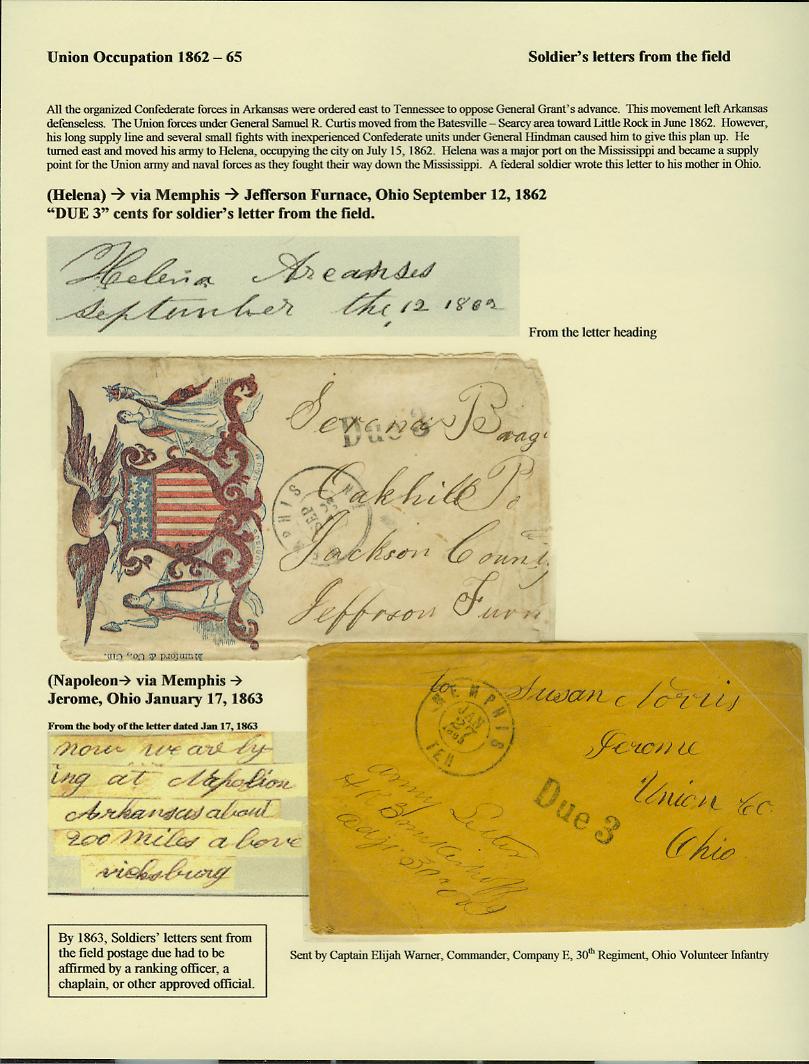 Union Occupation 1862 – 65
Soldier's letters from the field
All the organized Confederate forces in Arkansas were ordered east to Tennessee to oppose General Grant's advance. This movement left Arkansas
defenseless. The Union forces under General Samuel R. Curtis moved from the Batesville – Searcy area toward Little Rock in June 1862. However,
his long supply line and several small fights with inexperienced Confederate units under General Hindman caused him to give this plan up. He
turned east and moved his army to Helena, occupying the city on July 15, 1862. Helena was a major port on the Mississippi and became a supply
point for the Union army and naval forces as they fought their way down the Mississippi. A federal soldier wrote this letter to his mother in Ohio.
(Helena) → via Memphis → Jefferson Furnace, Ohio September 12, 1862
"DUE 3" cents for soldier's letter from the field.
Helena Arcanses
September the, 12 1862
From the letter heading
Due 3
Oakhill Po
MEMPHIS
SEP
Jackson County
Jefforson Furn
Mumford & Co., Cin.
(Napoleon→ via Memphis →
Jerome, Ohio January 17, 1863
From the body of the letter dated Jan 17, 1863
now we are ly
ing at Napolion
Arkansas about
200 miles above
vicksburg
to Susan Norris
Jerome
Union Co.
Ohio
MEMPHIS
JAN
27
1863
TEN
Due 3
Army Letter
Adjt 30th OVI
By 1863, Soldiers' letters sent from
the field postage due had to be
affirmed by a ranking officer, a
chaplain, or other approved official.
Sent by Captain Elijah Warner, Commander, Company E, 30th Regiment, Ohio Volunteer Infantry